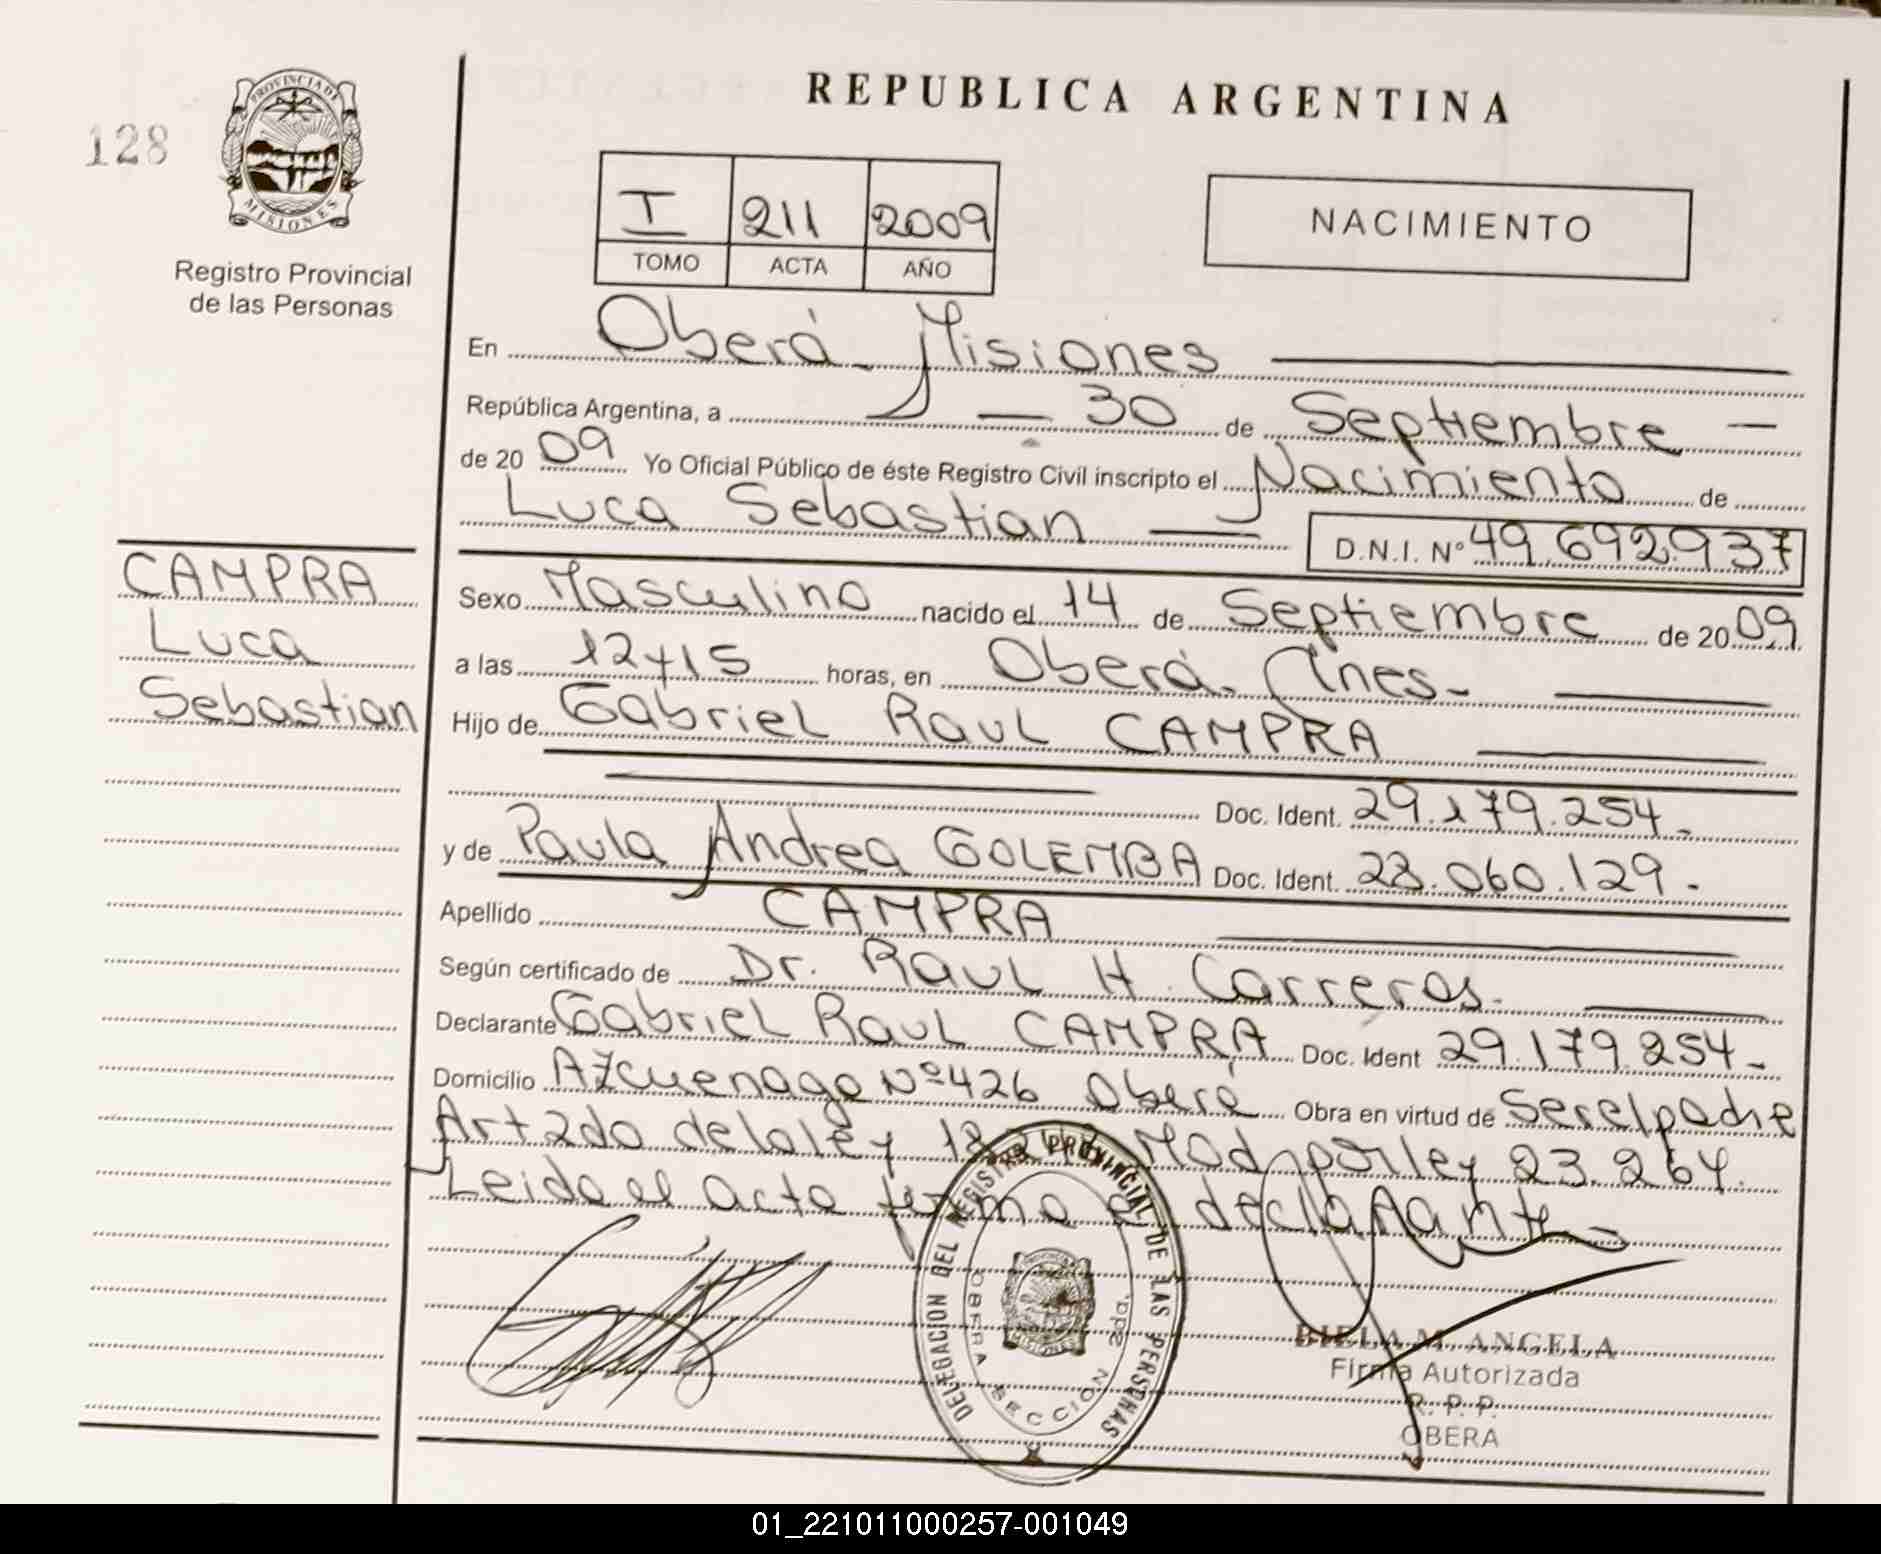 REPUBLICA ARGENTINA
128
PROVINCIA DE
MISIONES
Registro Provincial
de las Personas
I 211 2009
TOMO ACTA AÑO
NACIMIENTO
En Oberá Misiones
República Argentina, a 30 de Septiembre
de 2009 Yo Oficial Público de éste Registro Civil inscripto el Nacimiento de
Luca Sebastian D.N.I. Nº 49.692.937
CAMPRA
Luca
Sebastian
Sexo Masculino nacido el 14 de Septiembre de 2009
a las 12y15 horas, en Oberá. Mnes.
Hijo de Gabriel Raul CAMPRA
Doc. Ident. 29.179.254.
y de Paula Andrea GOLEMBA Doc. Ident. 28.060.129.
Apellido CAMPRA
Según certificado de Dr. Raul H. Carreras.
Declarante Gabriel Raul CAMPRA Doc. Ident 29.179.254.
Domicilio Azcuenaga Nº426 Oberá Obra en virtud de Ser el padre
Art 2do de la ley Mod por ley 23.264.
Leida el acta firma el declarante
DELEGACION DEL REGISTRO PROVINCIAL DE LAS PERSONAS
OBERA SECCION 2da.
BIELA M. ANGELA
Firma Autorizada
R. P. P.
OBERA
01_221011000257-001049